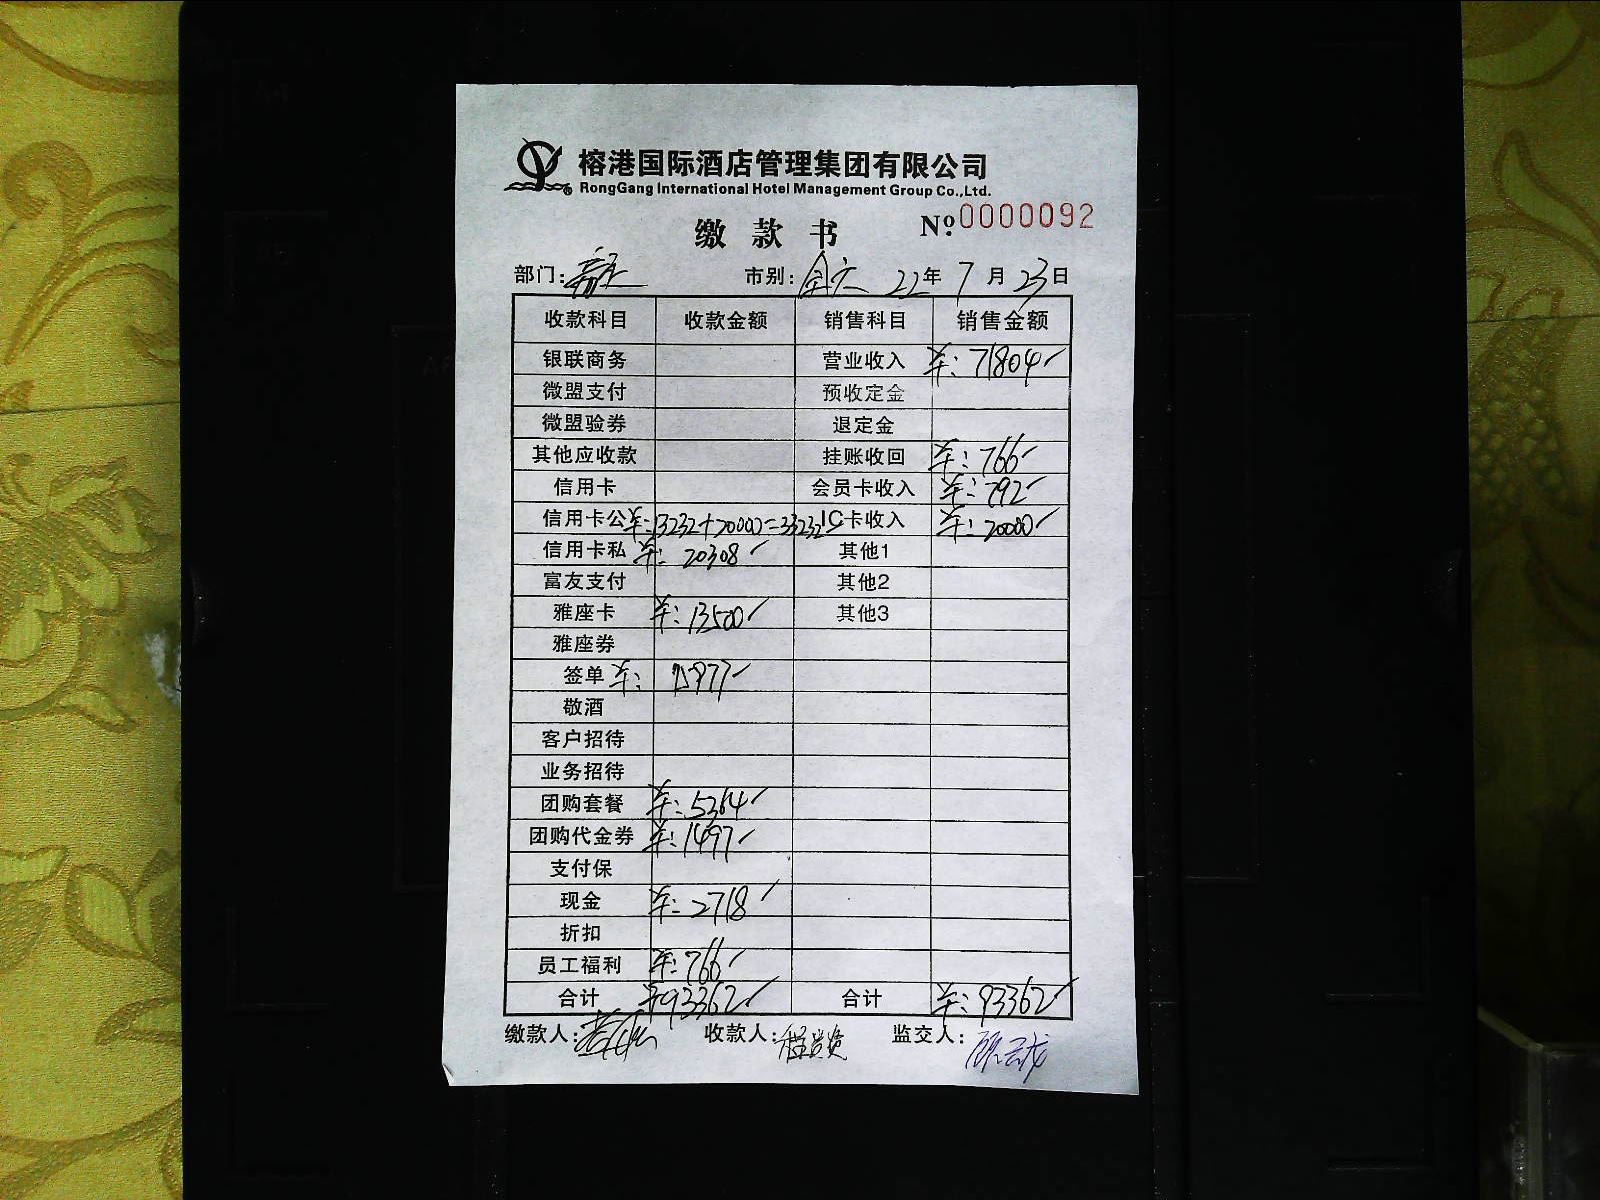 榕港国际酒店管理集团有限公司
RongGang International Hotel Management Group Co.,Ltd.
缴款书 Nº:0000092
部门: 市别: 22年 7月 23日
收款科目 收款金额 销售科目 销售金额
银联商务 营业收入 ¥:71804
微盟支付 预收定金
微盟验券 退定金
其他应收款 挂账收回 ¥:766
信用卡 会员卡收入 ¥:792
信用卡公 ¥:13232+20000=33232 IC卡收入 ¥:20000
信用卡私 ¥:20308 其他1
富友支付 其他2
雅座卡 ¥:13500 其他3
雅座券
签单 ¥:15977
敬酒
客户招待
业务招待
团购套餐 ¥:5364
团购代金券 ¥:1497
支付保
现金 ¥:2718
折扣
员工福利 ¥:766
合计 ¥93362 合计 ¥:93362
缴款人: 收款人: 监交人: